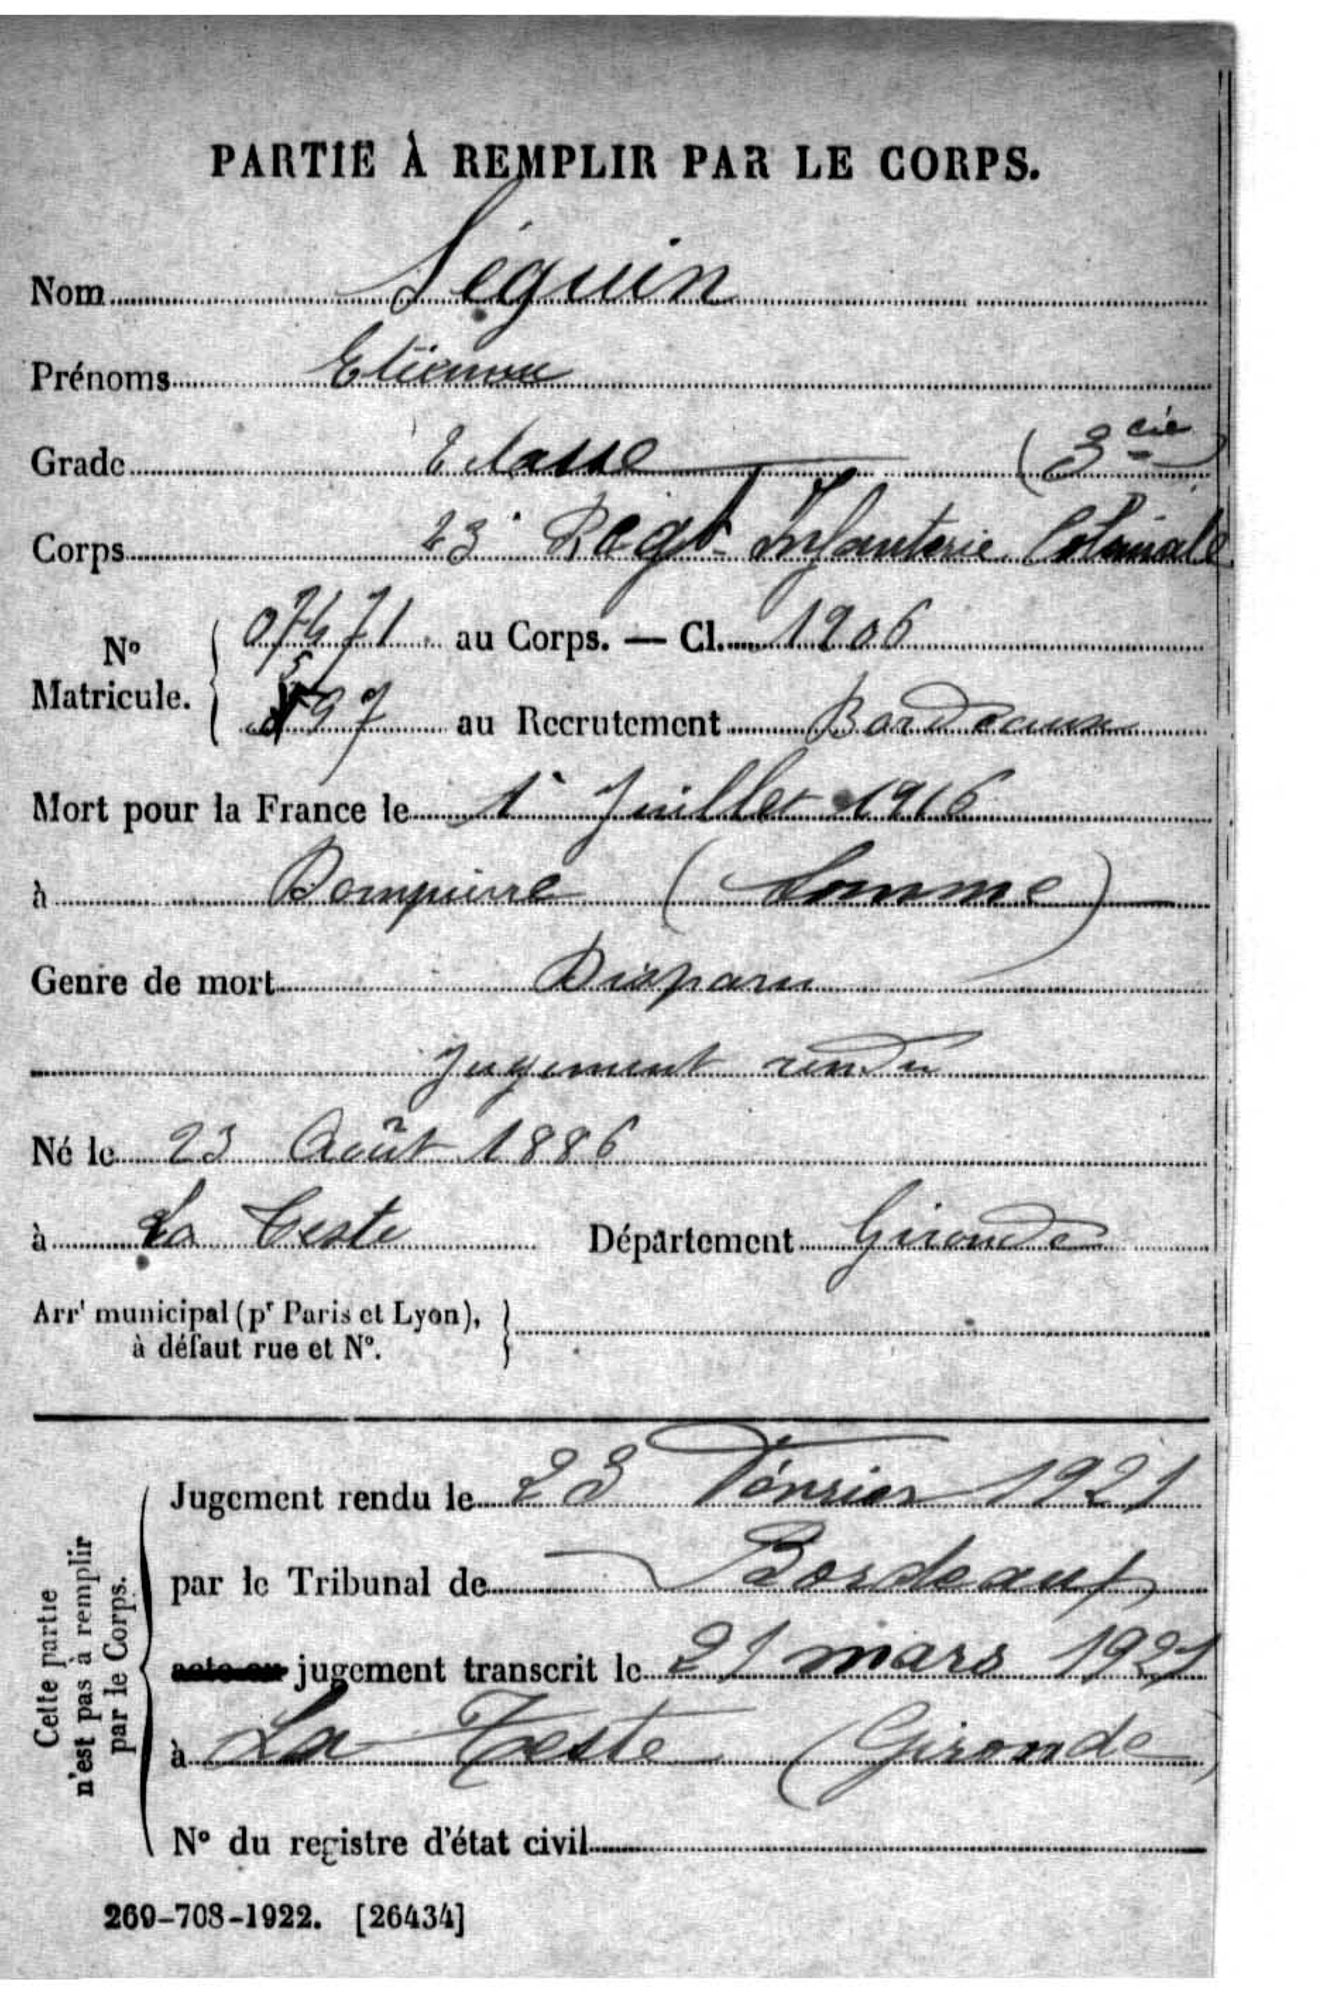 PARTIE À REMPLIR PAR LE CORPS.
Nom Séguin
Prénoms Etienne
Grade 2 classe (3 cie)
Corps 23e Regt Infanterie Coloniale
No Maticule. 07471 au Corps. — Cl. 1906
97 au Recrutement Bordeaux
Mort pour la France le 1er Juillet 1916
à Dompierre (Somme)
Genre de mort Disparu
Jugement rendu
Né le 23 Août 1886
à La Teste Département Gironde
Arrt municipal (pr Paris et Lyon),
à défaut rue et No.
Cette partie n'est pas à remplir par le Corps.
Jugement rendu le 23 Février 1921
par le Tribunal de Bordeaux
acte ou jugement transcrit le 21 mars 1921
à La Teste (Gironde)
No du registre d'état civil
269-708-1922. [26434]